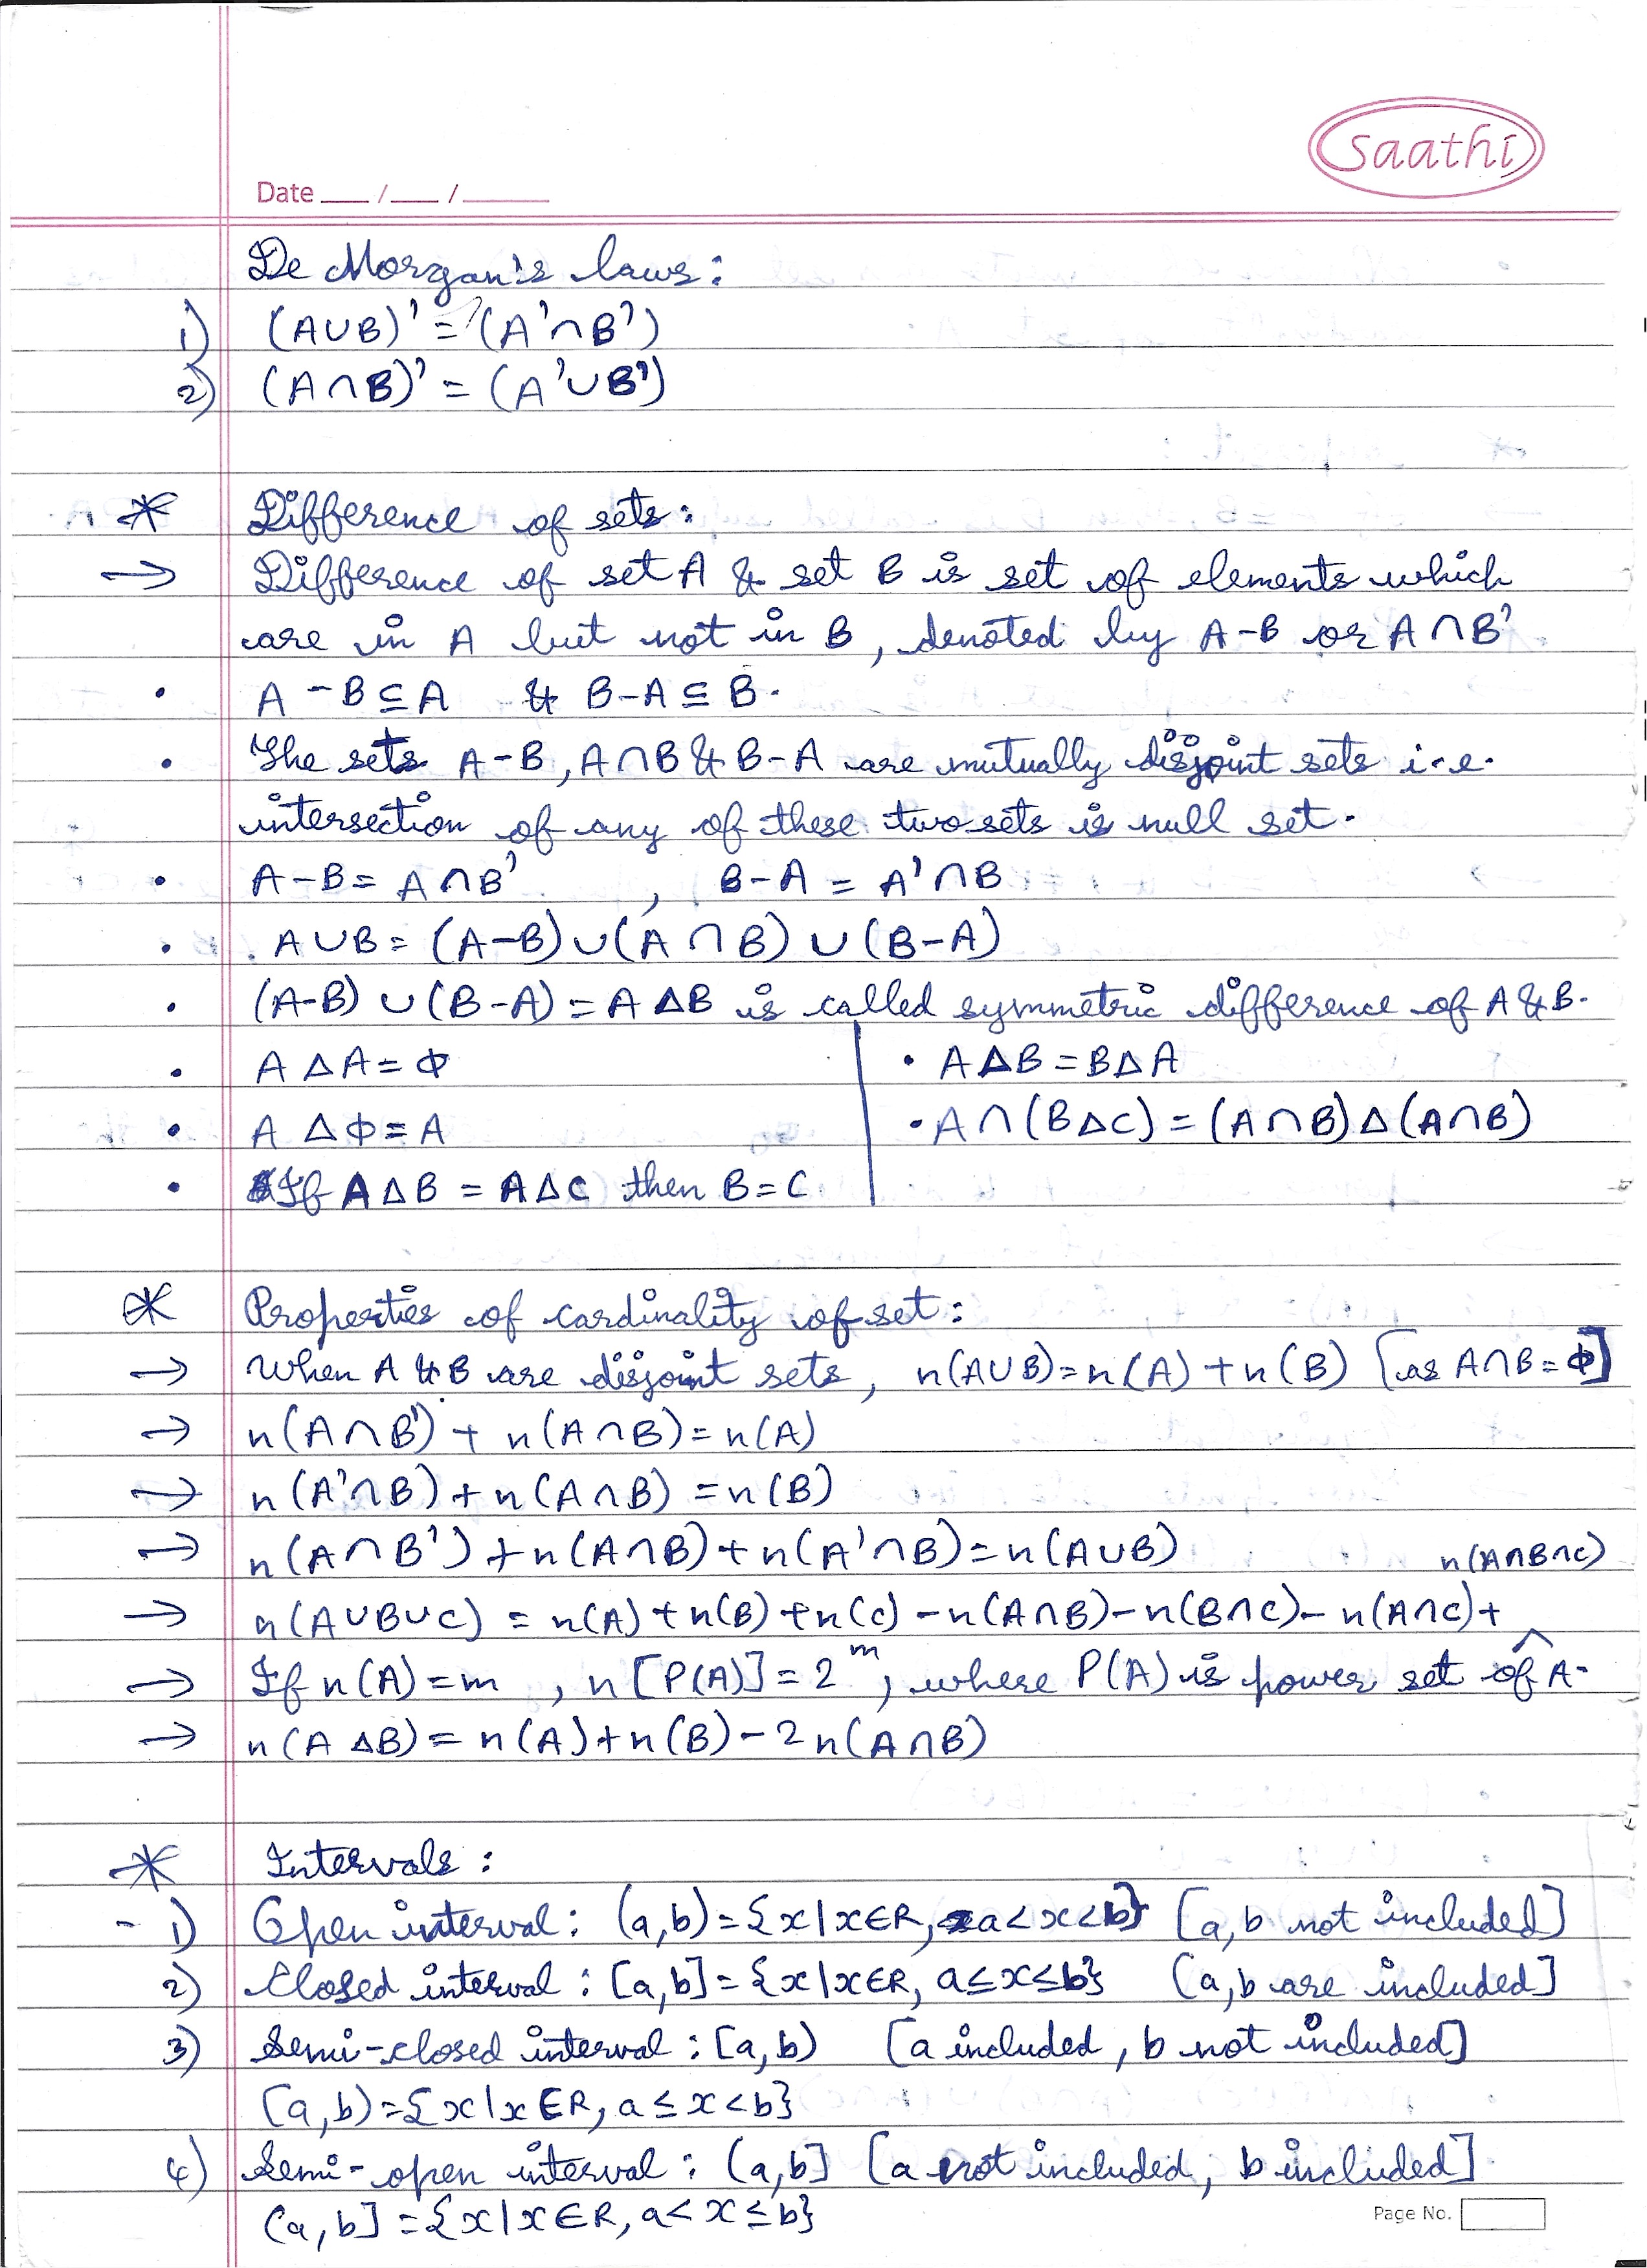 saathi
Date ___ / ___ / ______
De Morgan's laws:
1) (A∪B)' = (A'∩B')
2) (A∩B)' = (A'∪B')
* Difference of sets:
→ Difference of set A & set B is set of elements which
are in A but not in B, denoted by A-B or A∩B'
• A-B⊆A & B-A⊆B.
• The sets A-B, A∩B & B-A are mutually disjoint sets i.e.
intersection of any of these two sets is null set.
• A-B = A∩B' , B-A = A'∩B
• A∪B = (A-B)∪(A∩B)∪(B-A)
• (A-B)∪(B-A) = A∆B is called symmetric difference of A & B.
• A∆A = ϕ • A∆B = B∆A
• A∆ϕ = A • A∩(B∆C) = (A∩B)∆(A∩B)
• If A∆B = A∆C then B=C
* Properties of cardinality of set:
→ When A & B are disjoint sets, n(A∪B) = n(A) + n(B) [as A∩B = ϕ]
→ n(A∩B') + n(A∩B) = n(A)
→ n(A'∩B) + n(A∩B) = n(B)
→ n(A∩B') + n(A∩B) + n(A'∩B) = n(A∪B)
→ n(A∪B∪C) = n(A) + n(B) + n(C) - n(A∩B) - n(B∩C) - n(A∩C) + n(A∩B∩C)
→ If n(A) = m , n[P(A)] = 2^m, where P(A) is power set of A.
→ n(A∆B) = n(A) + n(B) - 2n(A∩B)
* Intervals:
- 1) Open interval: (a,b) = {x|x∈R, a<x<b} [a,b not included]
2) Closed interval: [a,b] = {x|x∈R, a≤x≤b} [a,b are included]
3) Semi-closed interval: [a,b) [a included, b not included]
[a,b) = {x|x∈R, a≤x<b}
4) Semi-open interval: (a,b] [a not included, b included]
(a,b] = {x|x∈R, a<x≤b}
Page No.